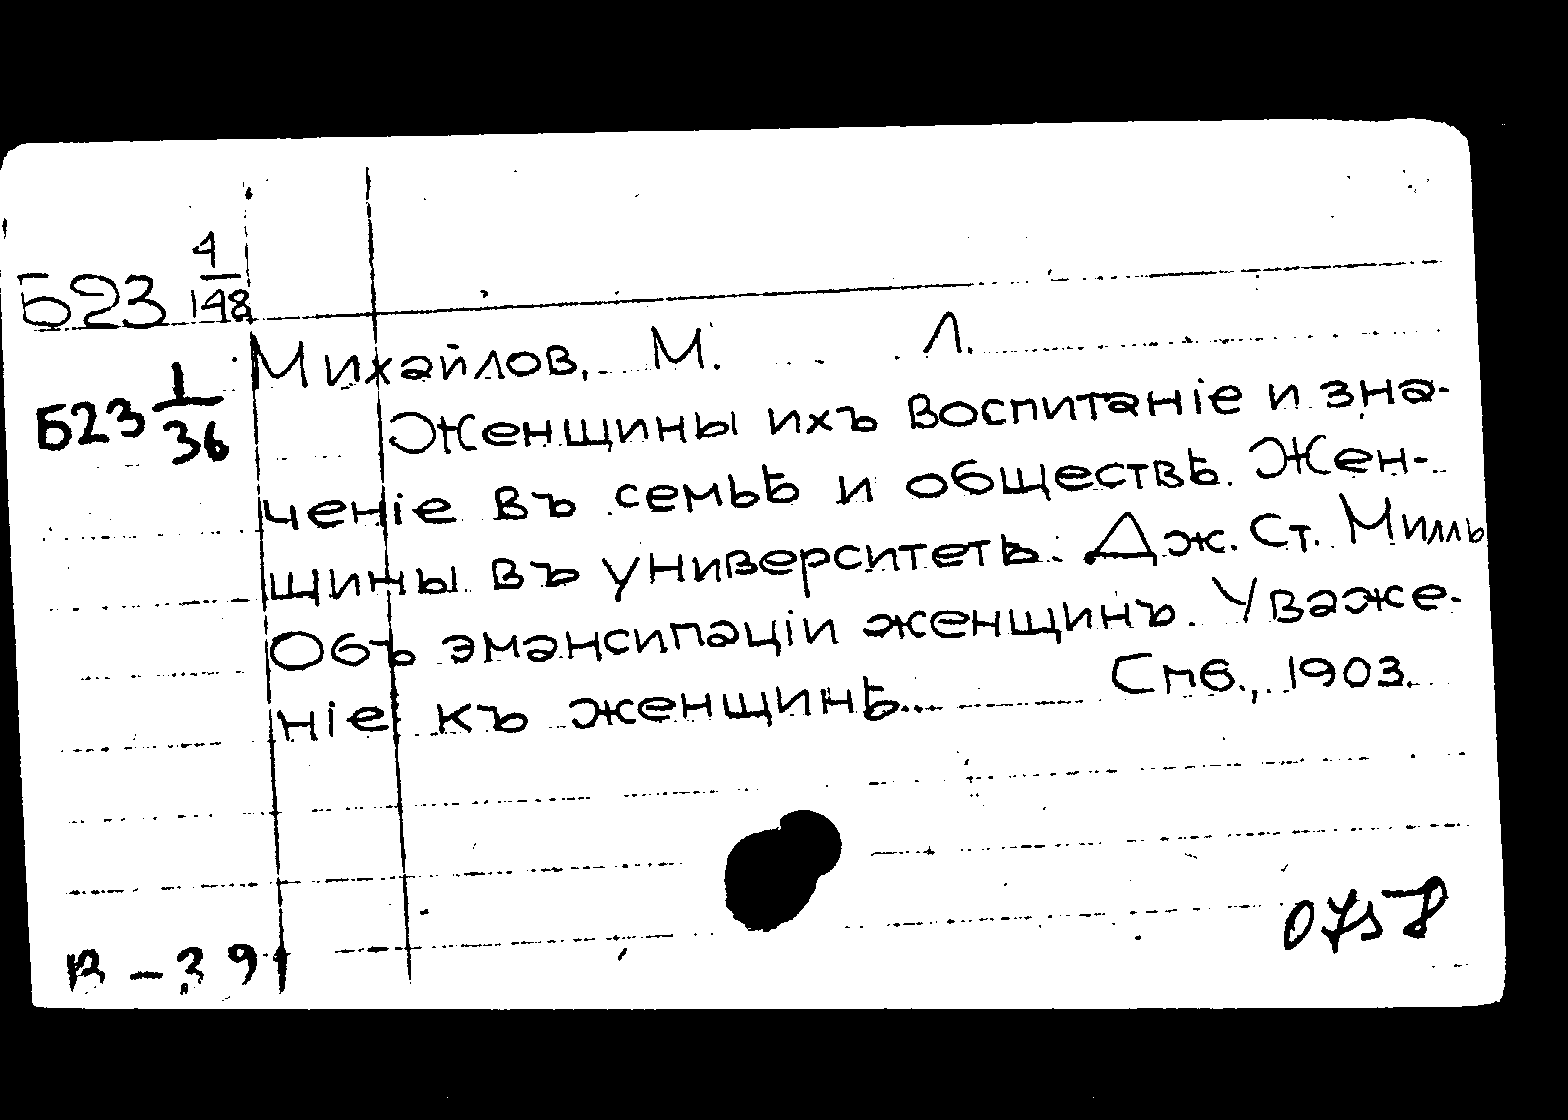 Б23 4/148
Михайлов, М. Л.
Б23 1/36
Женщины ихъ воспитаніе и зна-
ченіе въ семьѣ и обществѣ. Жен-
щины въ университетѣ. Дж. Ст. Милль
Объ эмансипаціи женщинъ. Уваже-
ніе къ женщинѣ... Спб., 1903.
В-39